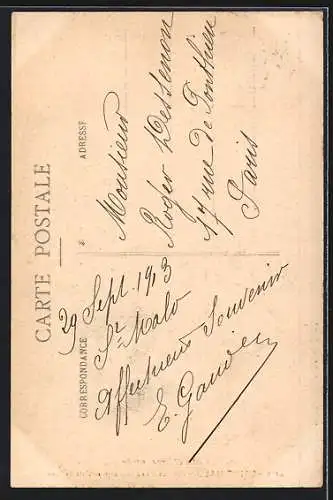 CARTE POSTALE
CORRESPONDANCE
29 Sept. 1913
St Malo
Affectueux Souvenir
ADRESSE
Monsieur
Roger
17 rue de Ponthieu
Paris